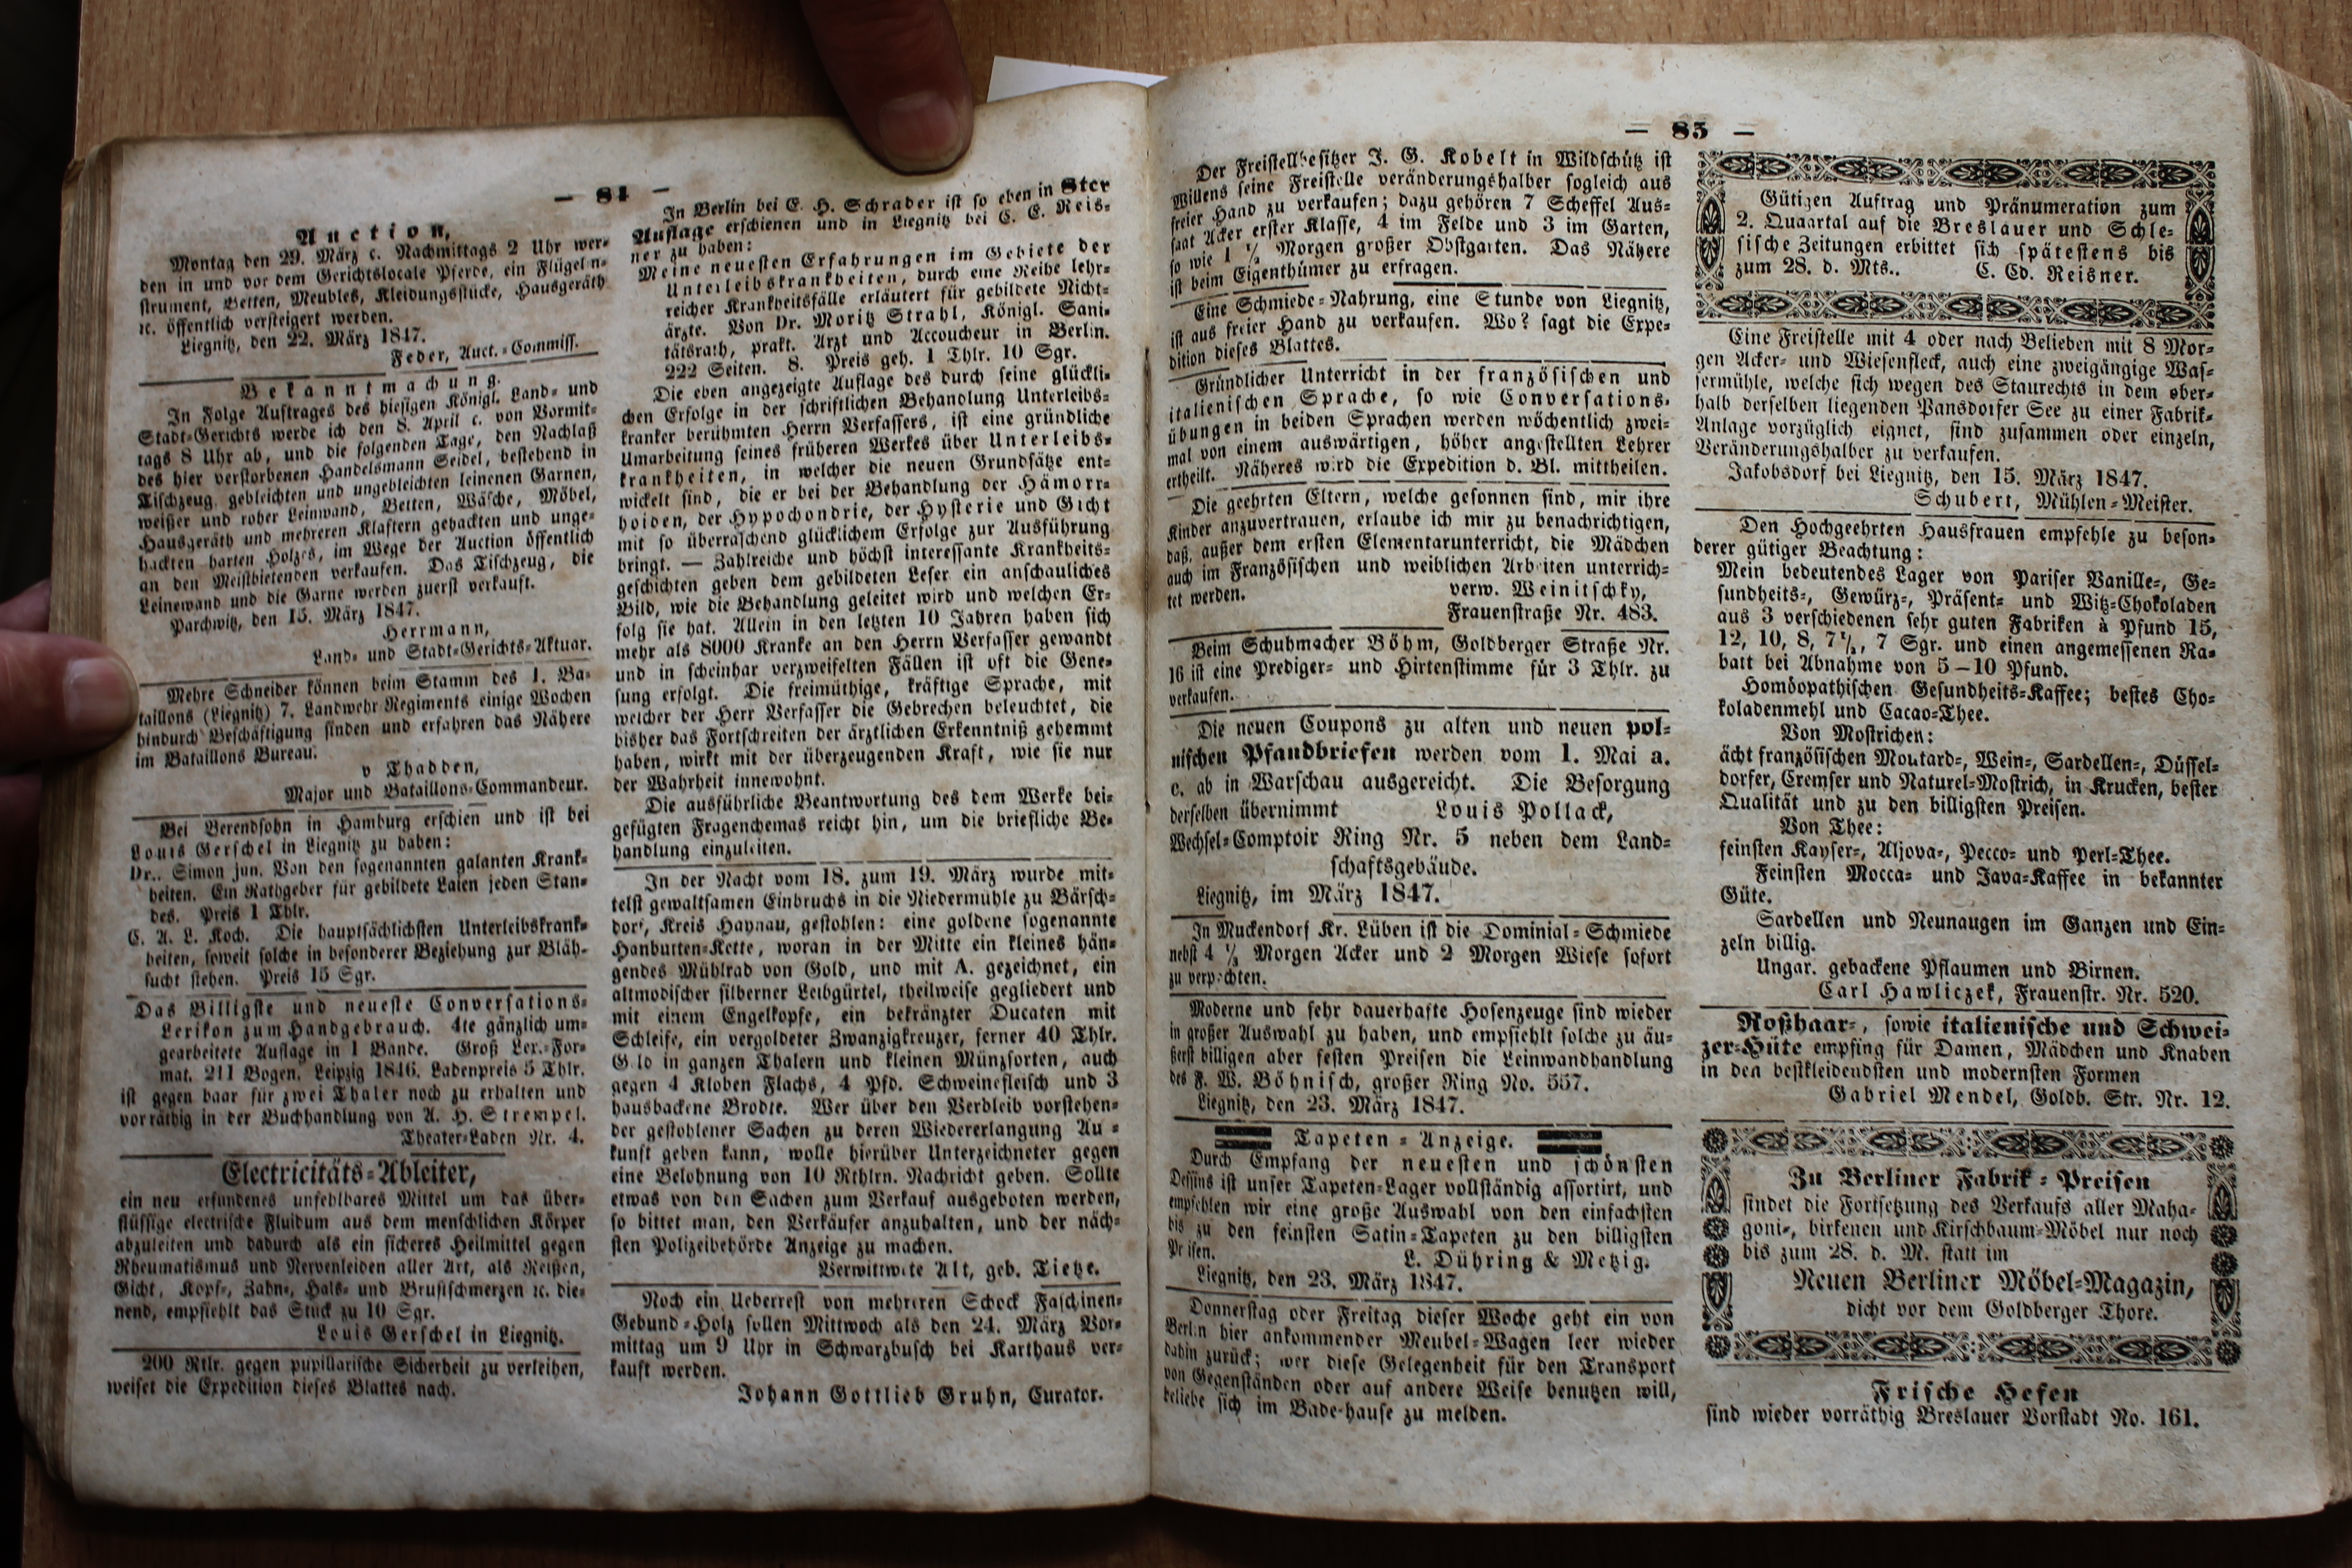 — 84 —
Auction,
Montag den 29. März c. Nachmittags 2 Uhr wer-
den in und vor dem Gerichtslocale Pferde, ein Flügelin-
strument, Betten, Meubles, Kleidungsstücke, Hausgeräth
ꝛc. öffentlich versteigert werden.
Liegnitz, den 22. März 1847.
Feder, Auct.-Commiss.
Bekanntmachung.
In Folge Auftrages des hiesigen Königl. Land- und
Stadt-Gerichts werde ich den 8. April c. von Vormit-
tags 8 Uhr ab, und die folgenden Tage, den Nachlaß
des hier verstorbenen Handelsmann Seidel, bestehend in
Tischzeug, gebleichten und ungebleichten leinenen Garnen,
weißer und roher Leinwand, Betten, Wäsche, Möbel,
Hausgeräth und mehreren Klaftern gehackten und unge-
hackten harten Holzes, im Wege der Auction öffentlich
an den Meistbietenden verkaufen. Das Tischzeug, die
Leinewand und die Garne werden zuerst verkauft.
Parchwitz, den 15. März 1847.
Herrmann,
Land- und Stadt-Gerichts-Aktuar.
Mehre Schneider können beim Stamm des 1. Ba-
taillons (Liegnitz) 7. Landwehr-Regiments einige Wochen
hindurch Beschäftigung finden und erfahren das Nähere
im Bataillons Bureau.
v Thadden,
Major und Bataillons-Commandeur.
Bei Berendsohn in Hamburg erschien und ist bei
Louis Gerschel in Liegnitz zu haben:
Dr.. Simon jun. Von den sogenannten galanten Krank-
heiten. Ein Rathgeber für gebildete Laien jeden Stan-
des. Preis 1 Thlr.
C. A. L. Koch. Die hauptsächlichsten Unterleibskrank-
heiten, soweit solche in besonderer Beziehung zur Bläh-
sucht stehen. Preis 15 Sgr.
Das Billigste und neueste Conversations-
Lexikon zum Handgebrauch. 4te gänzlich um-
gearbeitete Auflage in 1 Bande. Groß Lex.-For-
mat. 211 Bogen. Leipzig 1846. Ladenpreis 5 Thlr.
ist gegen baar für zwei Thaler noch zu erhalten und
vorräthig in der Buchhandlung von A. H. Strempel.
Theater-Laden Nr. 4.
Electricitäts-Ableiter,
ein neu erfundenes unfehlbares Mittel um das über-
flüssige electrische Fluidum aus dem menschlichen Körper
abzuleiten und dadurch als ein sicheres Heilmittel gegen
Rheumatismus und Nervenleiden aller Art, als Reißen,
Gicht, Kopf-, Zahn-, Hals- und Brustschmerzen ꝛc. die-
nend, empfiehlt das Stück zu 10 Sgr.
Louis Gerschel in Liegnitz.
200 Rtlr. gegen pupillarische Sicherheit zu verleihen,
weiset die Expedition dieses Blattes nach.
In Berlin bei E. H. Schrader ist so eben in 8ter
Auflage erschienen und in Liegnitz bei C. E. Reis-
ner zu haben:
Meine neuesten Erfahrungen im Gebiete der
Unterleibskrankheiten, durch eine Reihe lehr-
reicher Krankheitsfälle erläutert für gebildete Nicht-
ärzte. Von Dr. Moritz Strahl, Königl. Sani-
tätsrath, prakt. Arzt und Accoucheur in Berlin.
222 Seiten. 8. Preis geh. 1 Thlr. 10 Sgr.
Die eben angezeigte Auflage des durch seine glückli-
chen Erfolge in der schriftlichen Behandlung Unterleibs-
kranker berühmten Herrn Verfassers, ist eine gründliche
Umarbeitung seines früheren Werkes über Unterleibs-
krankheiten, in welcher die neuen Grundsätze ent-
wickelt sind, die er bei der Behandlung der Hämorr-
hoiden, der Hypochondrie, der Hysterie und Gicht
mit so überraschend glücklichem Erfolge zur Ausführung
bringt. — Zahlreiche und höchst interessante Krankheits-
geschichten geben dem gebildeten Leser ein anschauliches
Bild, wie die Behandlung geleitet wird und welchen Er-
folg sie hat. Allein in den letzten 10 Jahren haben sich
mehr als 8000 Kranke an den Herrn Verfasser gewandt
und in scheinbar verzweifelten Fällen ist oft die Gene-
sung erfolgt. Die freimüthige, kräftige Sprache, mit
welcher der Herr Verfasser die Gebrechen beleuchtet, die
bisher das Fortschreiten der ärztlichen Erkenntniß gehemmt
haben, wirkt mit der überzeugenden Kraft, wie sie nur
der Wahrheit innewohnt.
Die ausführliche Beantwortung des dem Werke bei-
gefügten Fragenchemas reicht hin, um die briefliche Be-
handlung einzuleiten.
In der Nacht vom 18. zum 19. März wurde mit-
telst gewaltsamen Einbruchs in die Niedermühle zu Bärsch-
dorf, Kreis Haynau, gestohlen: eine goldene sogenannte
Hanburten-Kette, woran in der Mitte ein kleines hän-
gendes Mühlrad von Gold, und mit A. gezeichnet, ein
altmodischer silberner Leibgürtel, theilweise gegliedert und
mit einem Engelkopfe, ein bekränzter Ducaten mit
Schleife, ein vergoldeter Zwanzigkreuzer, ferner 40 Thlr.
G ld in ganzen Thalern und kleinen Münzsorten, auch
gegen 4 Kloben Flachs, 4 Pfd. Schweinefleisch und 3
hausbackene Brodte. Wer über den Verbleib vorstehen-
der gestohlener Sachen zu deren Wiedererlangung Au -
kunft geben kann, wolle hierüber Unterzeichneter gegen
eine Belohnung von 10 Rthlrn. Nachricht geben. Sollte
etwas von den Sachen zum Verkauf ausgeboten werden,
so bittet man, den Verkäufer anzuhalten, und der näch-
sten Polizeibehörde Anzeige zu machen.
Verwittwete Alt, geb. Tietze.
Noch ein Ueberrest von mehreren Schock Faschinen-
Gebund-Holz sollen Mittwoch als den 24. März Vor-
mittag um 9 Uhr in Schwarzbusch bei Karthaus ver-
kauft werden.
Johann Gottlieb Gruhn, Curator.
— 85 —
Der Freistellbesitzer J. G. Kobelt in Wildschütz ist
Willens seine Freistelle veränderungshalber sogleich aus
freier Hand zu verkaufen; dazu gehören 7 Scheffel Aus-
saat Acker erster Klasse, 4 im Felde und 3 im Garten,
so wie 1 1/2 Morgen großer Obstgarten. Das Nähere
ist beim Eigenthümer zu erfragen.
Eine Schmiede-Nahrung, eine Stunde von Liegnitz,
ist aus freier Hand zu verkaufen. Wo? sagt die Expe-
dition dieses Blattes.
Gründlicher Unterricht in der französischen und
italienischen Sprache, so wie Conversations-
übungen in beiden Sprachen werden wöchentlich zwei-
mal von einem auswärtigen, höher angestellten Lehrer
ertheilt. Näheres wird die Expedition d. Bl. mittheilen.
Die geehrten Eltern, welche gesonnen sind, mir ihre
Kinder anzuvertrauen, erlaube ich mir zu benachrichtigen,
daß, außer dem ersten Elementarunterricht, die Mädchen
auch im Französischen und weiblichen Arbeiten unterrich-
tet werden. verw. Weinitschky,
Frauenstraße Nr. 483.
Beim Schuhmacher Böhm, Goldberger Straße Nr.
16 ist eine Prediger- und Hirtenstimme für 3 Thlr. zu
verkaufen.
Die neuen Coupons zu alten und neuen pol-
nischen Pfandbriefen werden vom 1. Mai a.
c. ab in Warschau ausgereicht. Die Besorgung
derselben übernimmt Louis Pollack,
Wechsel-Comptoir Ring Nr. 5 neben dem Land-
schaftsgebäude.
Liegnitz, im März 1847.
In Muckendorf Kr. Lüben ist die Dominial-Schmiede
nebst 4 1/3 Morgen Acker und 2 Morgen Wiese sofort
zu verpachten.
Moderne und sehr dauerhafte Hosenzeuge sind wieder
in großer Auswahl zu haben, und empfiehlt solche zu äu-
ßerst billigen aber festen Preisen die Leinwandhandlung
des F. W. Böhnisch, großer Ring No. 557.
Liegnitz, den 23. März 1847.
Tapeten-Anzeige.
Durch Empfang der neuesten und schönsten
Dessins ist unser Tapeten-Lager vollständig assortirt, und
empfehlen wir eine große Auswahl von den einfachsten
bis zu den feinsten Satin-Tapeten zu den billigsten
Preisen. L. Dühring & Metzig.
Liegnitz, den 23. März 1847.
Donnerstag oder Freitag dieser Woche geht ein von
Berlin hier ankommender Meubel-Wagen leer wieder
dahin zurück; wer diese Gelegenheit für den Transport
von Gegenständen oder auf andere Weise benutzen will,
beliebe sich im Bade-hause zu melden.
Gütigen Auftrag und Pränumeration zum
2. Quaartal auf die Breslauer und Schle-
sische Zeitungen erbittet sich spätestens bis
zum 28. d. Mts.. C. Ed. Reisner.
Eine Freistelle mit 4 oder nach Belieben mit 8 Mor-
gen Acker- und Wiesenfleck, auch eine zweigängige Was-
sermühle, welche sich wegen des Staurechts in dem ober-
halb derselben liegenden Pansdorfer See zu einer Fabrik-
Anlage vorzüglich eignet, sind zusammen oder einzeln,
Veränderungshalber zu verkaufen.
Jakobsdorf bei Liegnitz, den 15. März 1847.
Schubert, Mühlen-Meister.
Den Hochgeehrten Hausfrauen empfehle zu beson-
derer gütiger Beachtung:
Mein bedeutendes Lager von Pariser Vanille-, Ge-
sundheits-, Gewürz-, Präsent- und Witz-Chokoladen
aus 3 verschiedenen sehr guten Fabriken à Pfund 15,
12, 10, 8, 7 1/2, 7 Sgr. und einen angemessenen Ra-
batt bei Abnahme von 5—10 Pfund.
Homöopathischen Gesundheits-Kaffee; bestes Cho-
koladenmehl und Cacao-Thee.
Von Mostrichen:
ächt französischen Moutard-, Wein-, Sardellen-, Düssel-
dorfer, Cremser und Naturel-Mostrich, in Krucken, bester
Qualität und zu den billigsten Preisen.
Von Thee:
feinsten Kayser-, Aljova-, Pecco- und Perl-Thee.
Feinsten Mocca- und Java-Kaffee in bekannter
Güte.
Sardellen und Neunaugen im Ganzen und Ein-
zeln billig.
Ungar. gebackene Pflaumen und Birnen.
Carl Hawliczek, Frauenstr. Nr. 520.
Roßhaar-, sowie italienische und Schwei-
zer-Hüte empfing für Damen, Mädchen und Knaben
in den bestkleidendsten und modernsten Formen
Gabriel Mendel, Goldb. Str. Nr. 12.
Zu Berliner Fabrik-Preisen
findet die Fortsetzung des Verkaufs aller Maha-
goni-, birkenen und Kirschbaum-Möbel nur noch
bis zum 28. d. M. statt im
Neuen Berliner Möbel-Magazin,
dicht vor dem Goldberger Thore.
Frische Hefen
sind wieder vorräthig Breslauer Vorstadt No. 161.